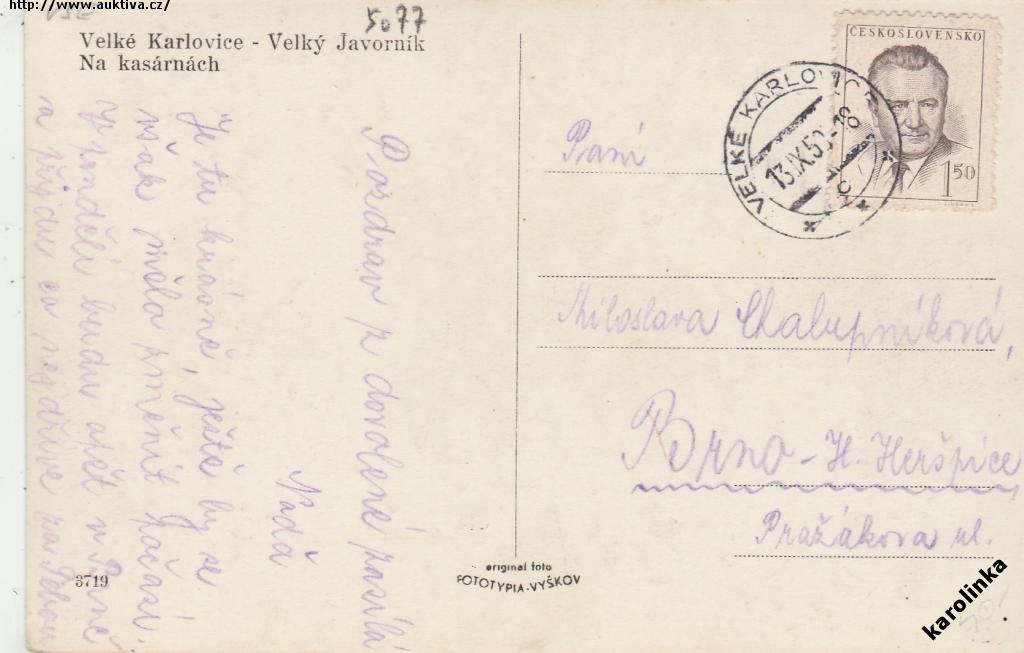 http://www.auktiva.cz/
5077
Velké Karlovice - Velký Javorník
Na kasárnách
Pozdrav z dovolené zasílá
Naďa
Je tu krásně, ještě by se
však mělo změnit počasí.
V pondělí budu opět v Brně
a přijdu co nejdříve za Tebou
3719
original foto
FOTOTYPIA-VYŠKOV
ČESKOSLOVENSKO
1.50
VELKÉ KARLOVICE
13.IX.50-18
c
Paní
Miloslava Chalupníková,
Brno - H. Heršpice
Pražákova ul.
karolinka